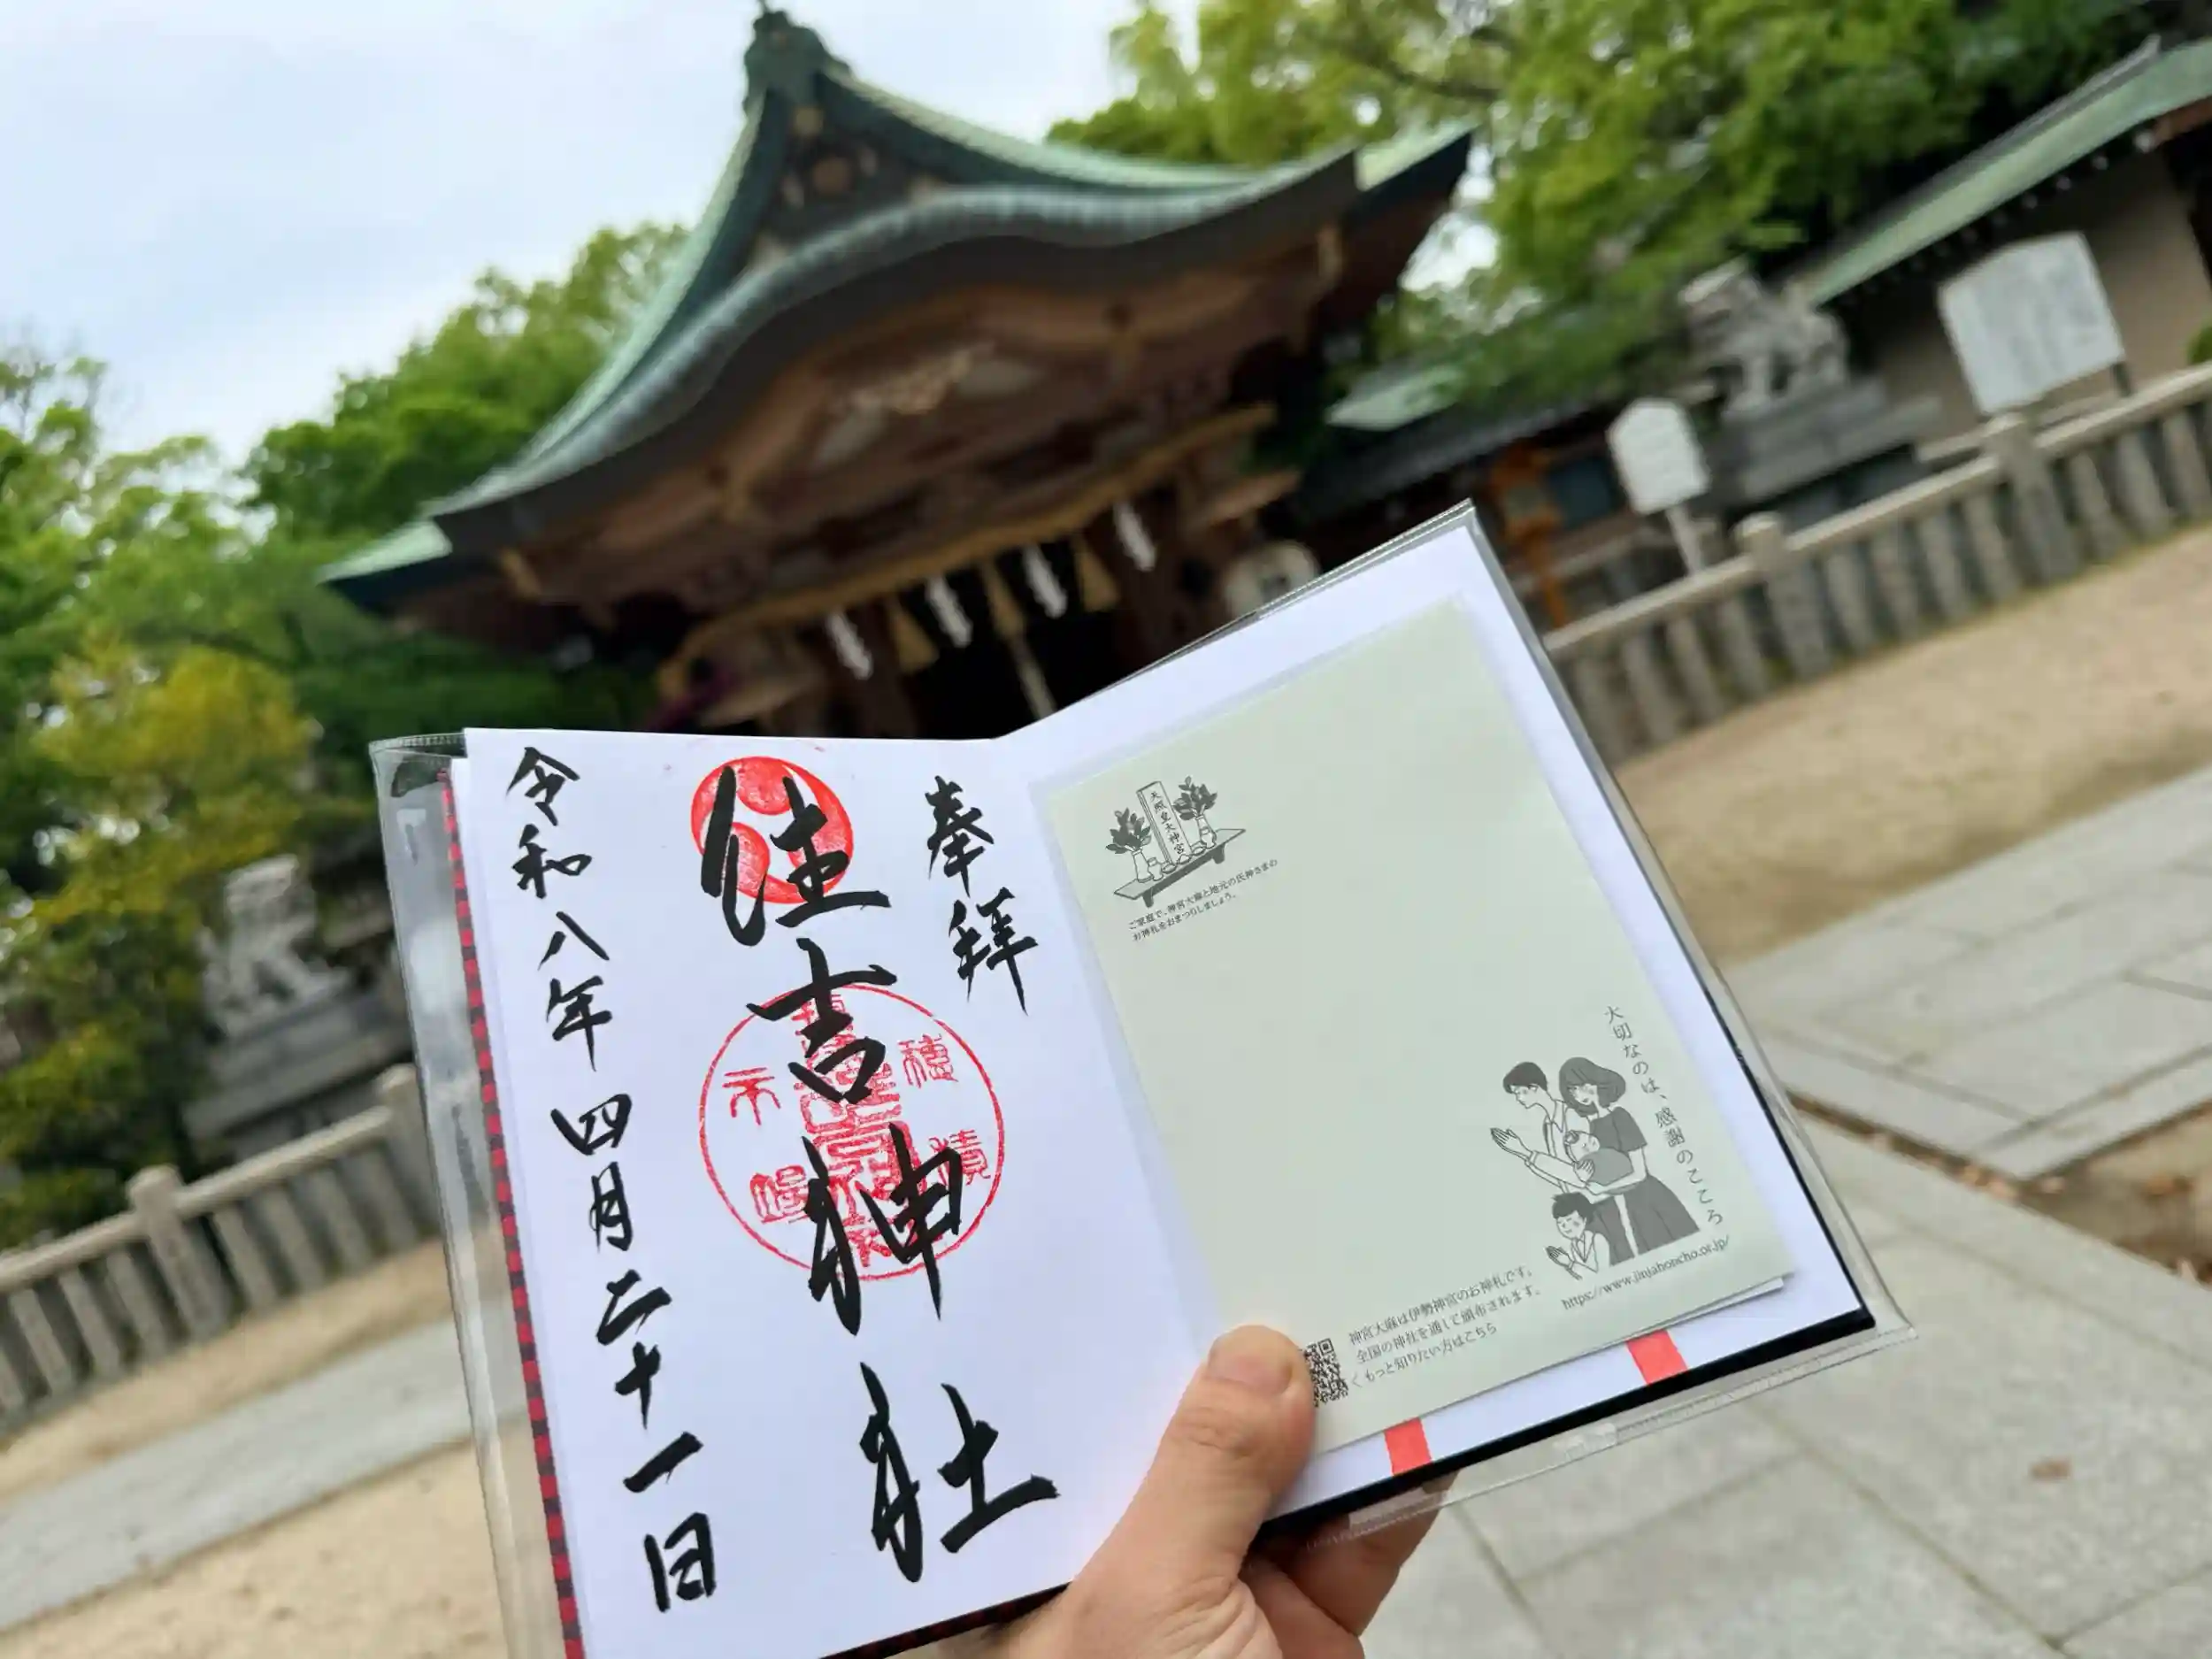 奉拝
住吉神社
令和八年四月二十一日
天照皇大神宮
ご家庭で、神宮大麻と地元の氏神さまの
お神札をおまつりしましょう。
大切なのは、感謝のこころ
https://www.jinjahoncho.or.jp/
神宮大麻は伊勢神宮のお神札です。
全国の神社を通して頒布されます。
もっと知りたい方はこちら